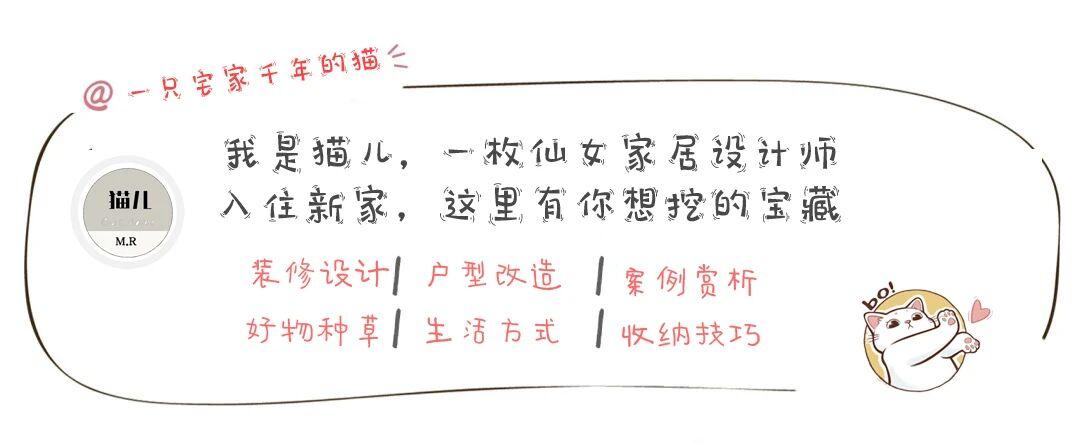 @一只宅家千年的猫
我是猫儿，一枚仙女家居设计师
入住新家，这里有你想挖的宝藏
猫儿
M.R
装修设计 | 户型改造 | 案例赏析
好物种草 | 生活方式 | 收纳技巧
bo!